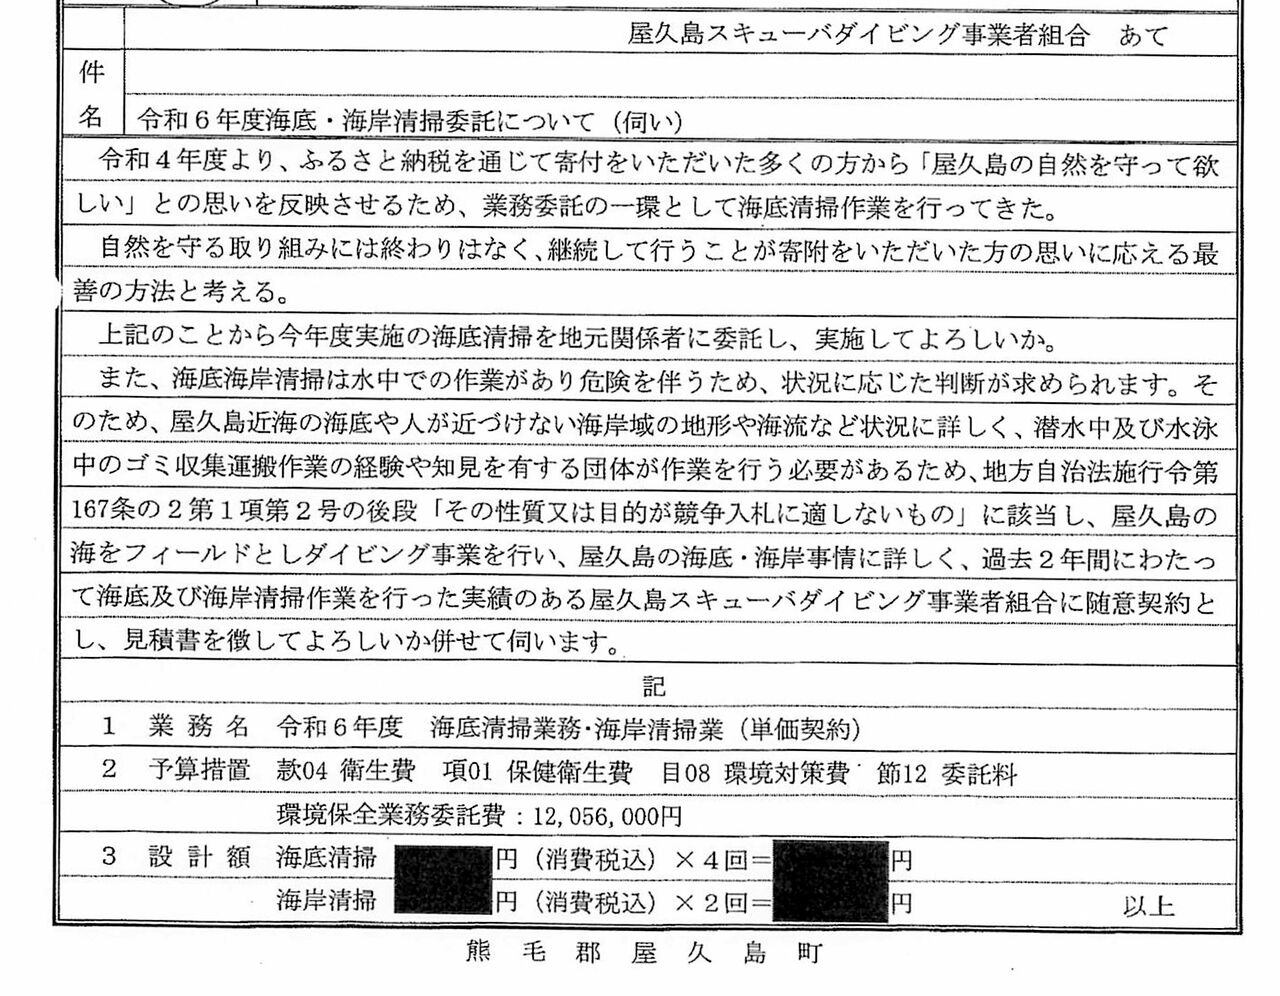 屋久島スキューバダイビング事業者組合　あて
件
名　令和６年度海底・海岸清掃委託について（伺い）
令和４年度より、ふるさと納税を通じて寄付をいただいた多くの方から「屋久島の自然を守って欲
しい」との思いを反映させるため、業務委託の一環として海底清掃作業を行ってきた。
自然を守る取り組みには終わりはなく、継続して行うことが寄附をいただいた方の思いに応える最
善の方法と考える。
上記のことから今年度実施の海底清掃を地元関係者に委託し、実施してよろしいか。
また、海底海岸清掃は水中での作業があり危険を伴うため、状況に応じた判断が求められます。そ
のため、屋久島近海の海底や人が近づけない海岸域の地形や海流など状況に詳しく、潜水中及び水泳
中のゴミ収集運搬作業の経験や知見を有する団体が作業を行う必要があるため、地方自治法施行令第
167条の２第１項第２号の後段「その性質又は目的が競争入札に適しないもの」に該当し、屋久島の
海をフィールドとしダイビング事業を行い、屋久島の海底・海岸事情に詳しく、過去２年間にわたっ
て海底及び海岸清掃作業を行った実績のある屋久島スキューバダイビング事業者組合に随意契約と
し、見積書を徴してよろしいか併せて伺います。
記
１　業務名　令和６年度　海底清掃業務・海岸清掃業（単価契約）
２　予算措置　款04 衛生費　項01 保健衛生費　目08 環境対策費　節12 委託料
環境保全業務委託費：12,056,000円
３　設計額　海底清掃　円（消費税込）×４回＝　円
海岸清掃　円（消費税込）×２回＝　円　以上
熊毛郡屋久島町